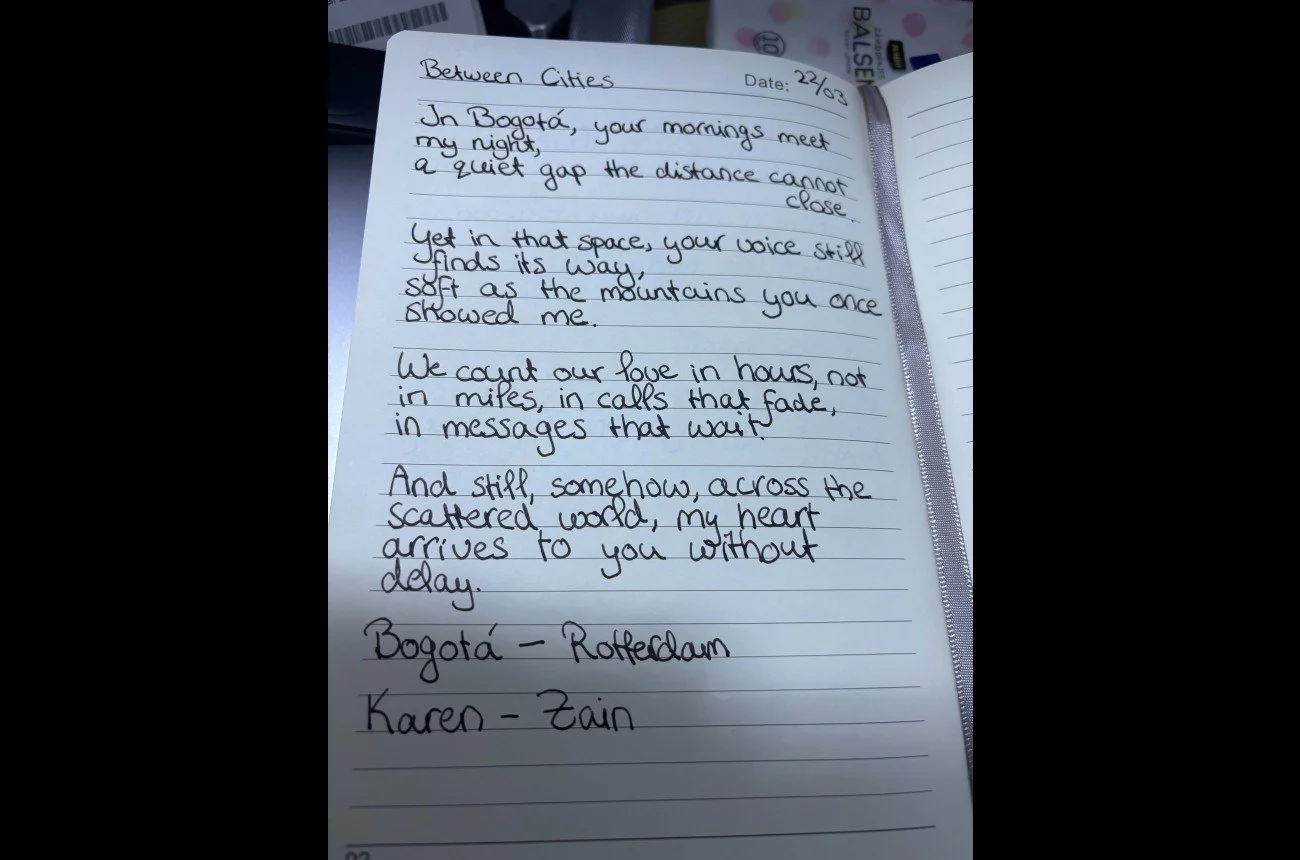 BALSEN
10
Between Cities
Date: 22/03
In Bogotá, your mornings meet
my night,
a quiet gap the distance cannot
close.
Yet in that space, your voice still
finds its way,
soft as the mountains you once
showed me.
We count our love in hours, not
in miles, in calls that fade,
in messages that wait.
And still, somehow, across the
scattered world, my heart
arrives to you without
delay.
Bogotá – Rotterdam
Karen – Zain